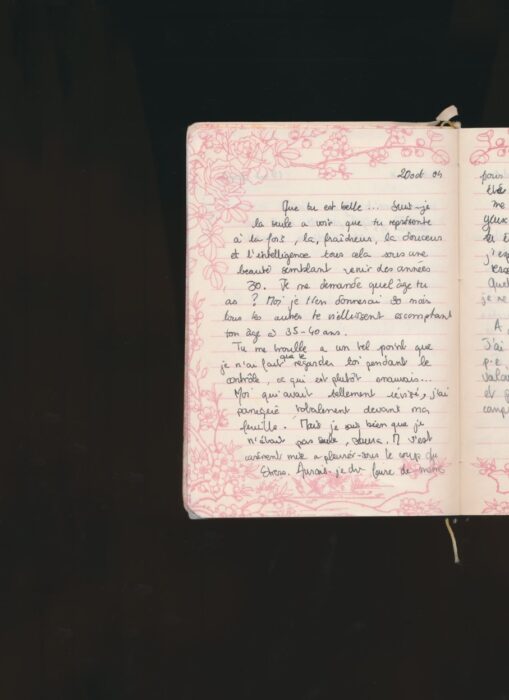 20 oct 04
Que tu est belle ... Suis-je
la seule a voir que tu représente
à la fois, la, fraîcheur, la douceur
et l'intelligence tous cela sous une
beauté semblant venir des années
30. Je me demande quel âge tu
as ? Moi je t'en donnerai 30 mais
tous les autres te vieillissent escomptant
ton âge à 35-40 ans.
Tu me trouble a un tel point que
je n'ai fait que te regarder toi pendant le
contrôle, ce qui est plutôt mauvais...
Moi qui avait tellement révisé, j'ai
paniquée totalement devant ma
feuille. Mais je sais bien que je
n'étais pas seule, M s'est
carément mise a pleurer sous le coup du
stress. Aurais-je du faire de
pour
me
yeux
j'
je ne
A
J'ai
p-e
et